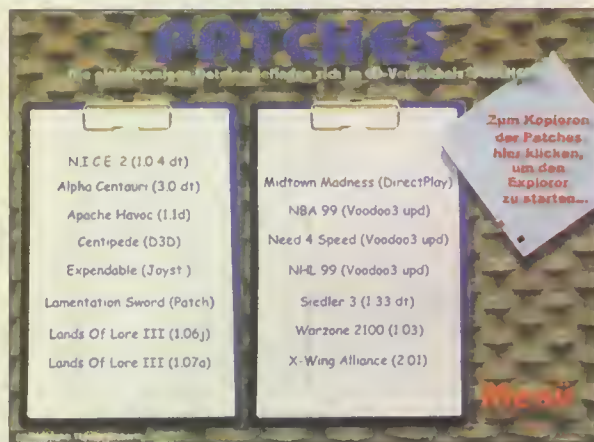 PATCHES
Die gleichnamigen Dateien befinden sich im CD-Verzeichnis
N.I.C.E 2 (1.0 4 dt)
Alpha Centauri (3.0 dt)
Apache Havoc (1.1d)
Centipede (D3D)
Expendable (Joyst )
Lamentation Sword (Patch)
Lands Of Lore III (1.06j)
Lands Of Lore III (1.07a)
Midtown Madness (DirectPlay)
NBA 99 (Voodoo3 upd)
Need 4 Speed (Voodoo3 upd)
NHL 99 (Voodoo3 upd)
Siedler 3 (1 33 dt)
Warzone 2100 (1 03)
X-Wing Alliance (2 01)
Zum Kopieren
der Patches
hier klicken,
um den
Explorer
zu starten...
Menü